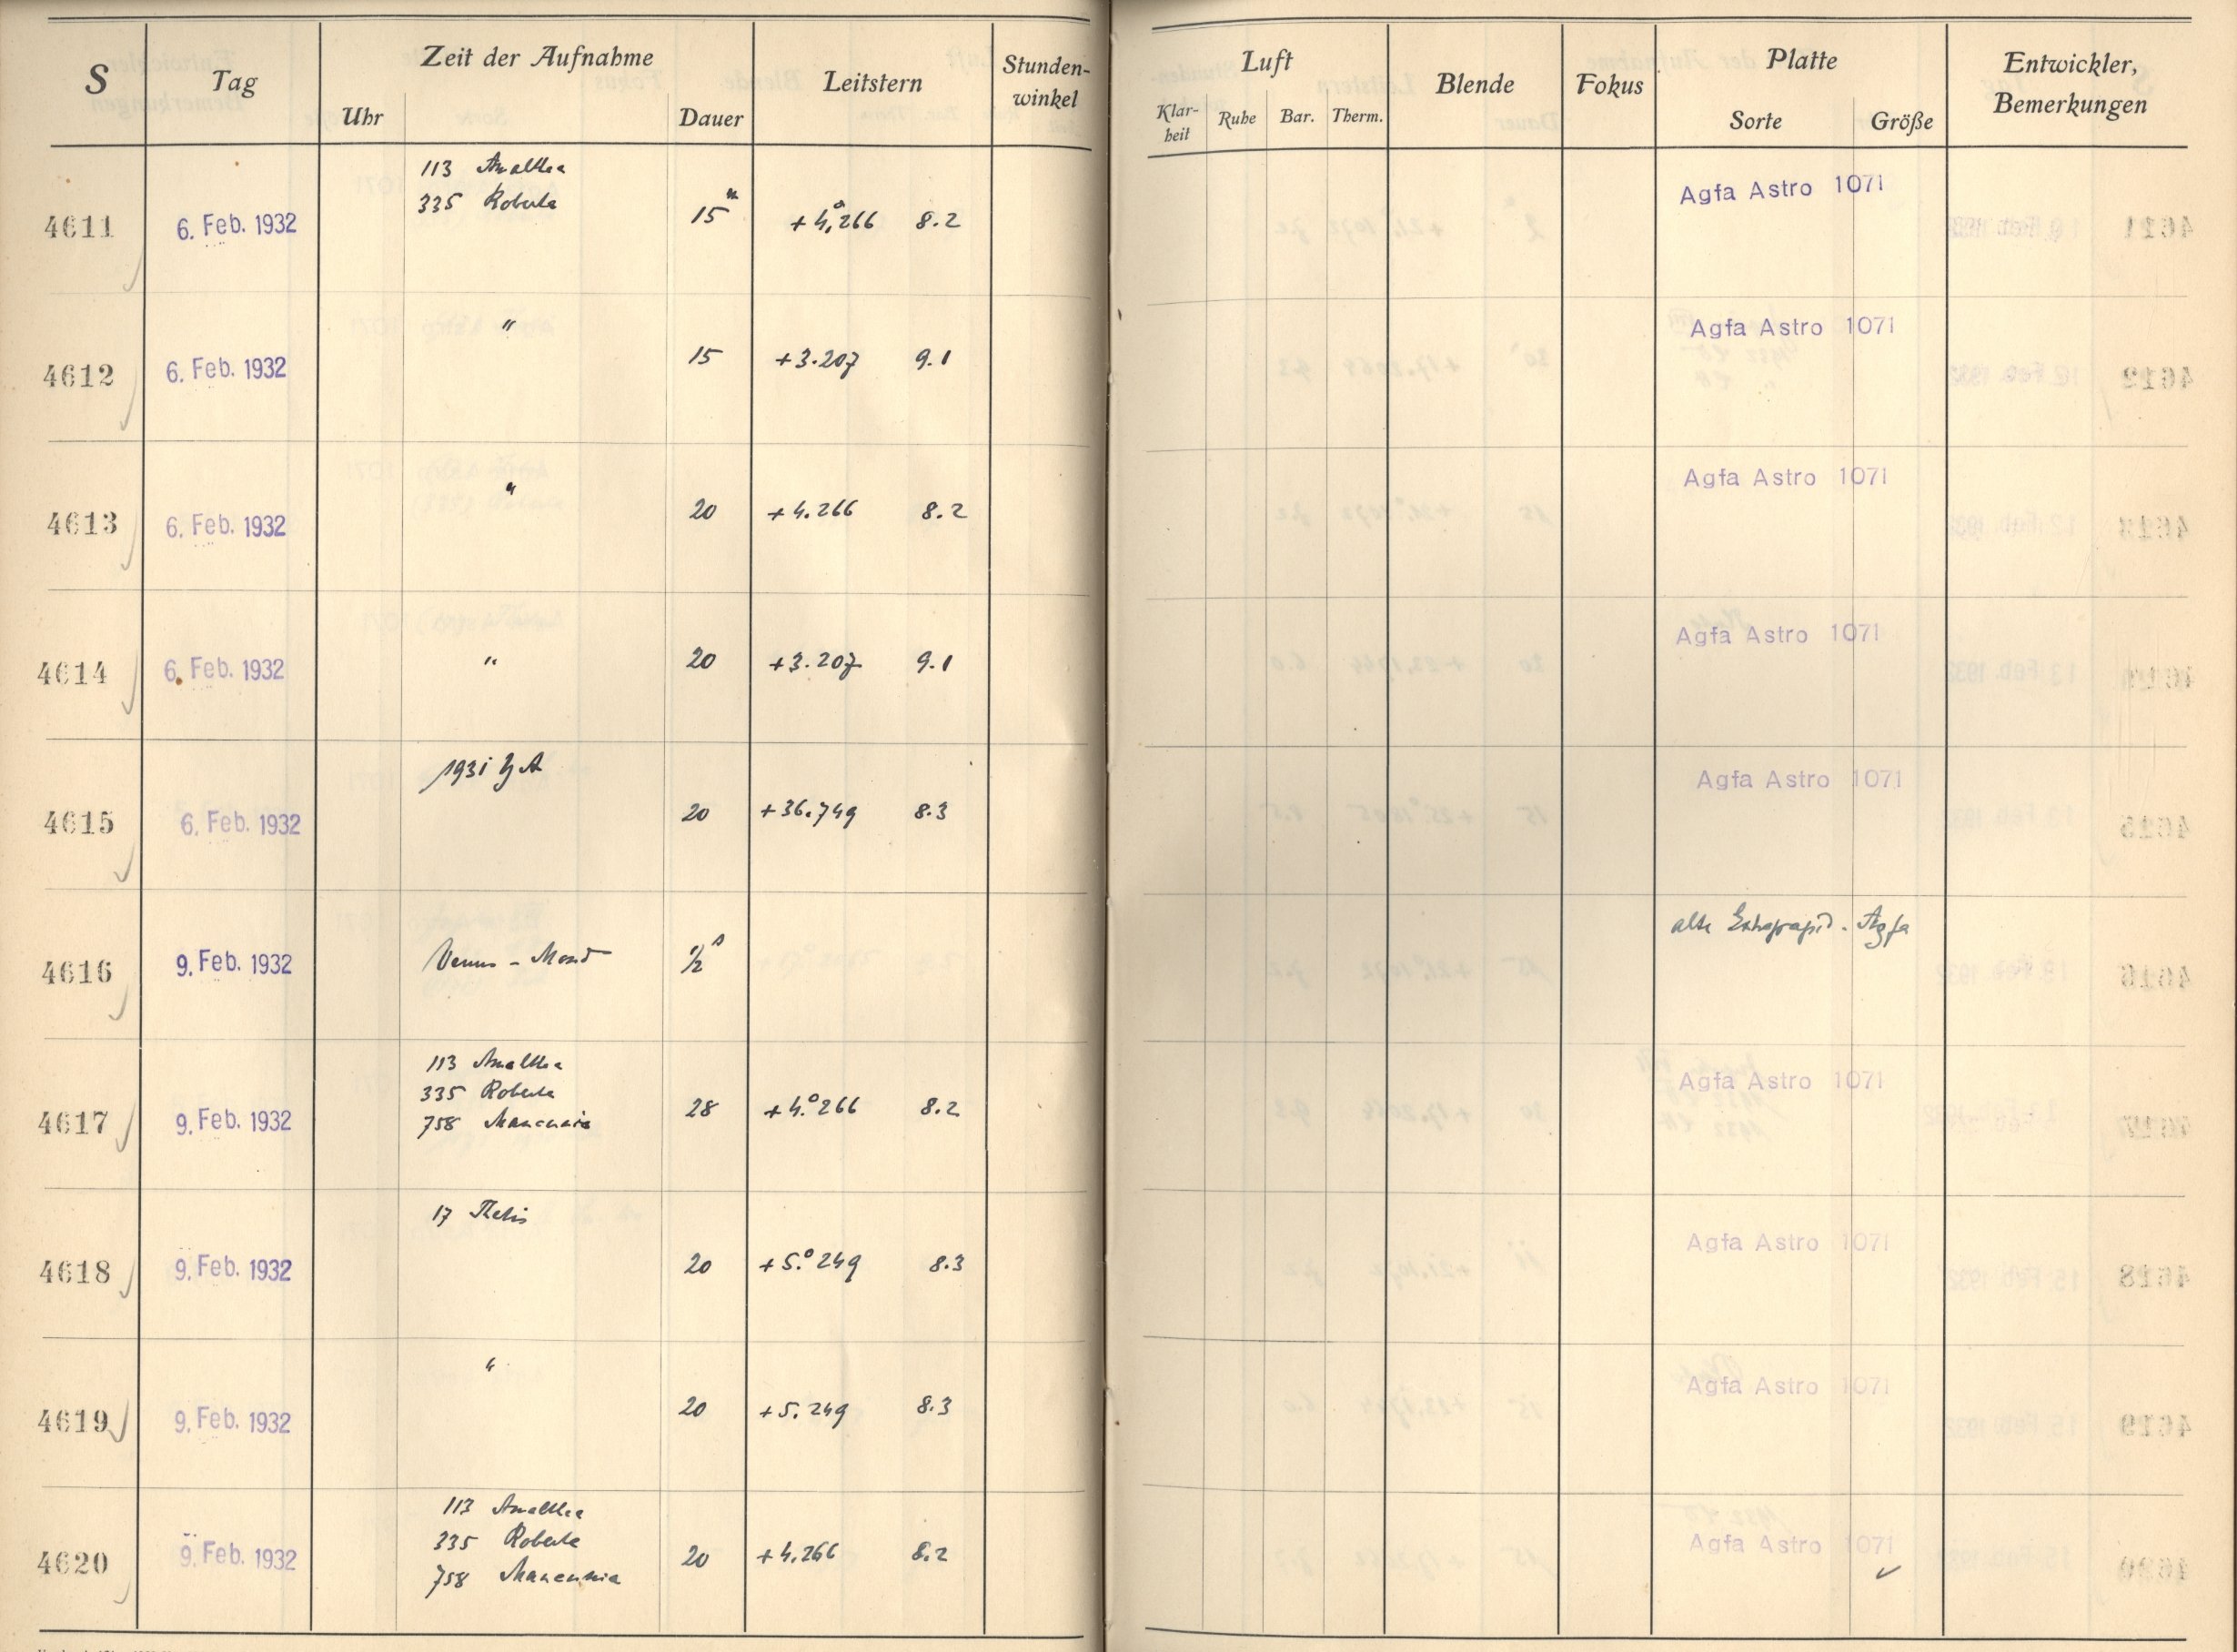 S Tag Zeit der Aufnahme Leitstern Stunden-winkel Luft Blende Fokus Platte Entwickler, Bemerkungen
Uhr Dauer Klar-heit Ruhe Bar. Therm. Sorte Größe
113 Amalthea
335 Roberta
4611 6. Feb. 1932 15m +4°,266 8.2 Agfa Astro 1071
4612 6. Feb. 1932 " 15 +3.207 9.1 Agfa Astro 1071
4613 6. Feb. 1932 " 20 +4.266 8.2 Agfa Astro 1071
4614 6. Feb. 1932 " 20 +3.207 9.1 Agfa Astro 1071
1931
4615 6. Feb. 1932 20 +36.749 8.3 Agfa Astro 1071
4616 9. Feb. 1932 Venus - Mond 1/2s alte Extrarapid. Agfa
113 Amalthea
335 Roberta
758 Mancunia
4617 9. Feb. 1932 28 +4.°266 8.2 Agfa Astro 1071
17 Thetis
4618 9. Feb. 1932 20 +5.°249 8.3 Agfa Astro 1071
4619 9. Feb. 1932 " 20 +5.249 8.3 Agfa Astro 1071
113 Amalthea
335 Roberta
758 Mancunia
4620 9. Feb. 1932 20 +4.266 8.2 Agfa Astro 1071